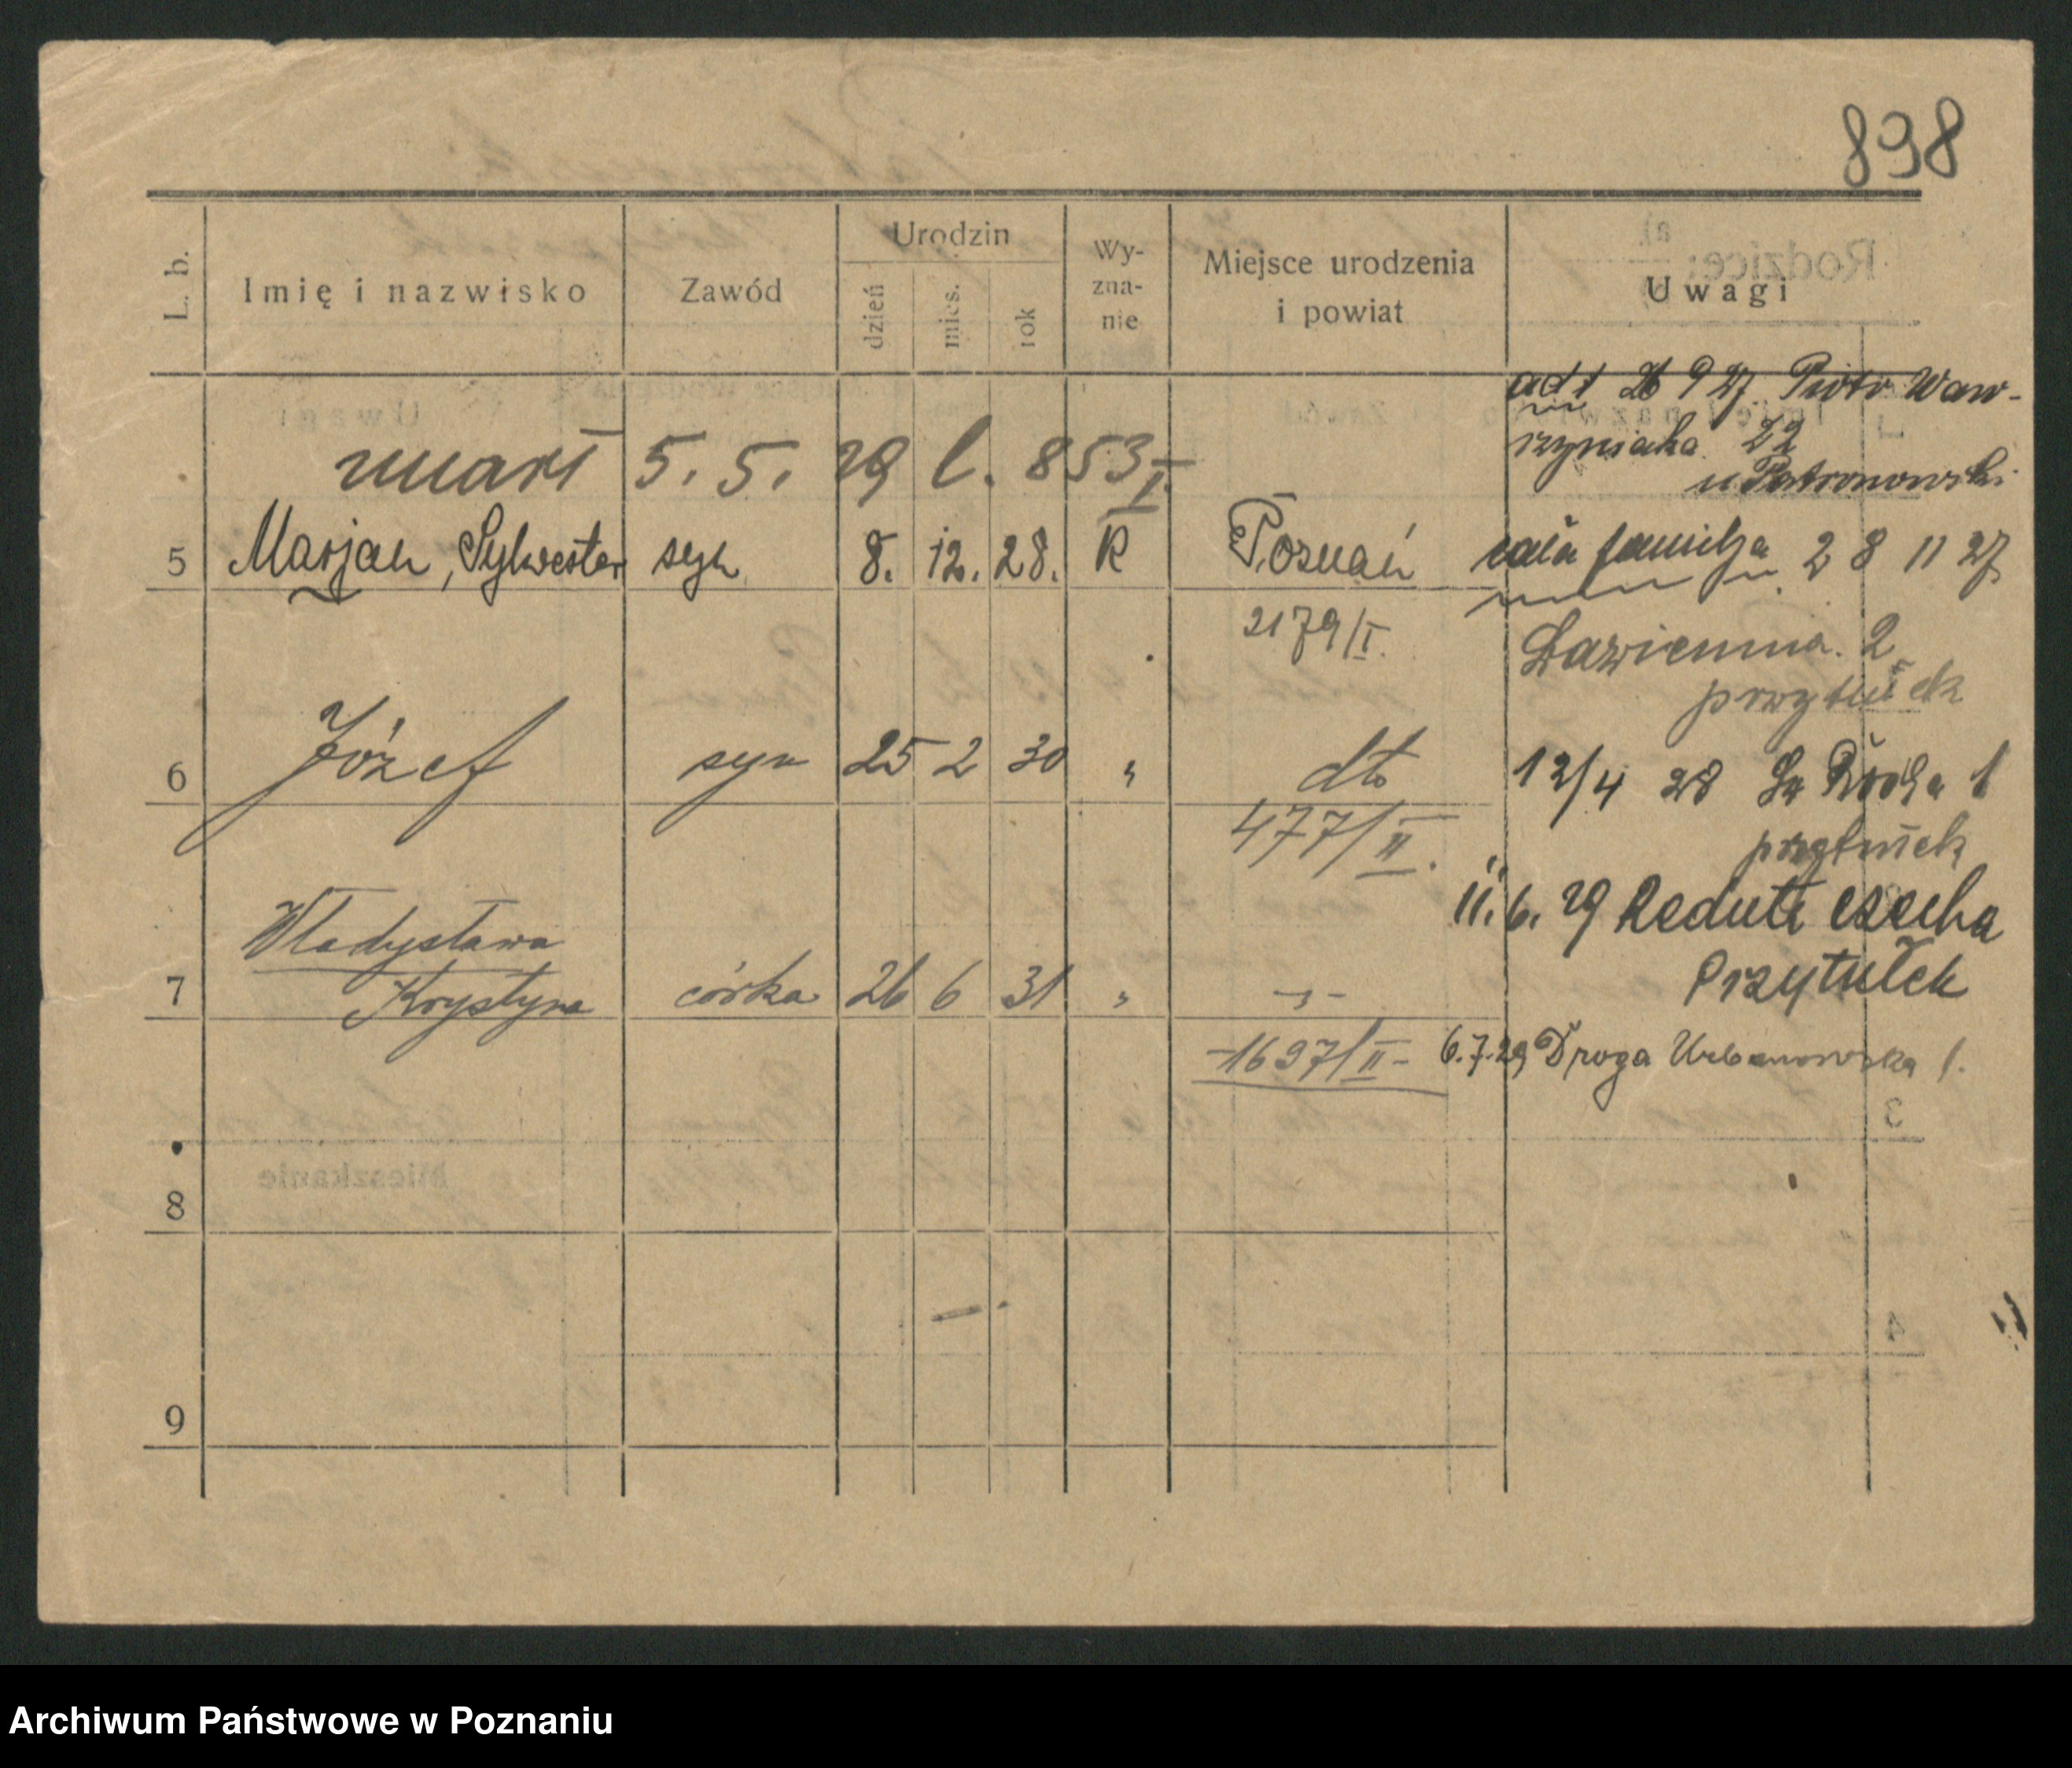 898
L. b.
Imię i nazwisko
Zawód
Urodzin
dzień
mies.
rok
Wy-
zna-
nie
Miejsce urodzenia
i powiat
Uwagi
Rodzice:
a)
zmarł 5. 5. 29 l. 853/I.
5 Marjan, Sylwester syn 8. 12. 28. K Poznań
2179/I.
6 Józef syn 25 2 30 " dto
477/II.
7 Władysława
Krystyna córka 26 6 31 " -"-
-1697/II-
8
9
ad 1 26 9 27. Piotr Waw-
rzyniaka 22
u Patronowski
cała familja 28 11 27
Łazienna. 2
przytułek
12/4 28 Św Rocha 1
przytułek
11. 6. 29 Reduta czecha
Przytułek
6.7.29 Droga Urbanowska 1.
Mieszkanie
3
4
Archiwum Państwowe w Poznaniu